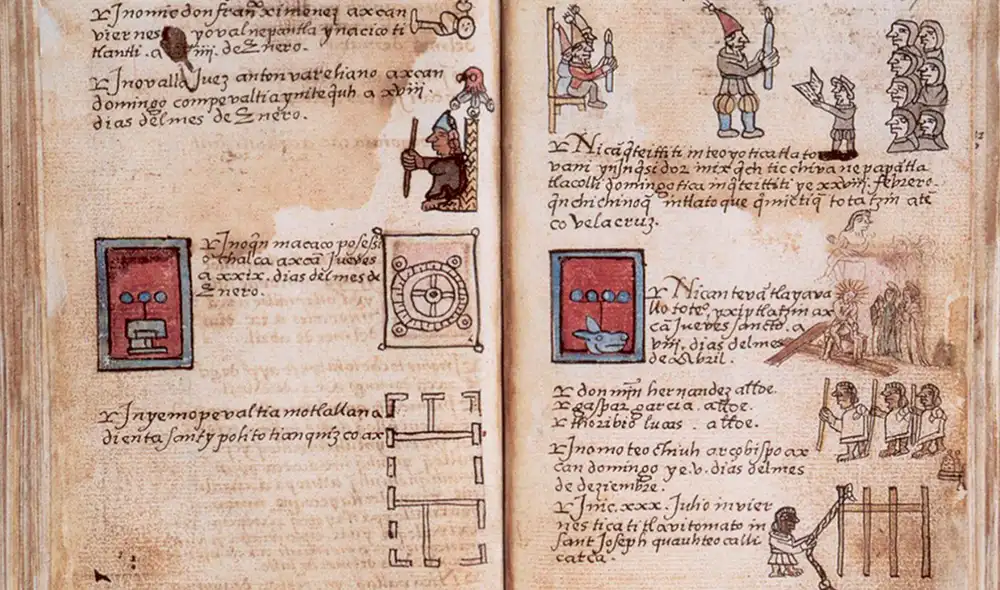 Inomic don franco ximenez axcan
viernes yoval nepantla ynacico ti
tlantli. a iiii. de Enero.
Inovalla Juez anton vareliano axcan
domingo compevaltia ynitequh a xviij
dias del mes de Enero.
Inoqn macaco posessi
o chalca axcā Jueves
a xxix. dias del mes de
Enero.
Inyemopevaltia motlallana
dienta sanct ypolito tianquizco ax
Nicā q̄teittiti in teoyotica tlato
vani ynInqsidor mixq̄ch tic chiva nepapātla
tlacolli domingotica mq̄teittiti ye xxviij. febrero.
q̄n chichinoq̄ intlatoque q̄mictiq̄ totatzin atē
co velacruz.
Nican tevā tlayava
lo totec. yxiptlatzin ax
cā Jueves sancto. a
viij. dias del mes
de Abril.
don mīn hernandez allde.
gaspar garcia. allde.
thoribio lucas. allde.
Inomoteochiuh arçobispo ax
can domingo ye. v. dias del mes
de deziembre.
Inic. xxx. Julio in vier
nes tica titlavitomato in
sant Joseph quauhteocalli
catca.